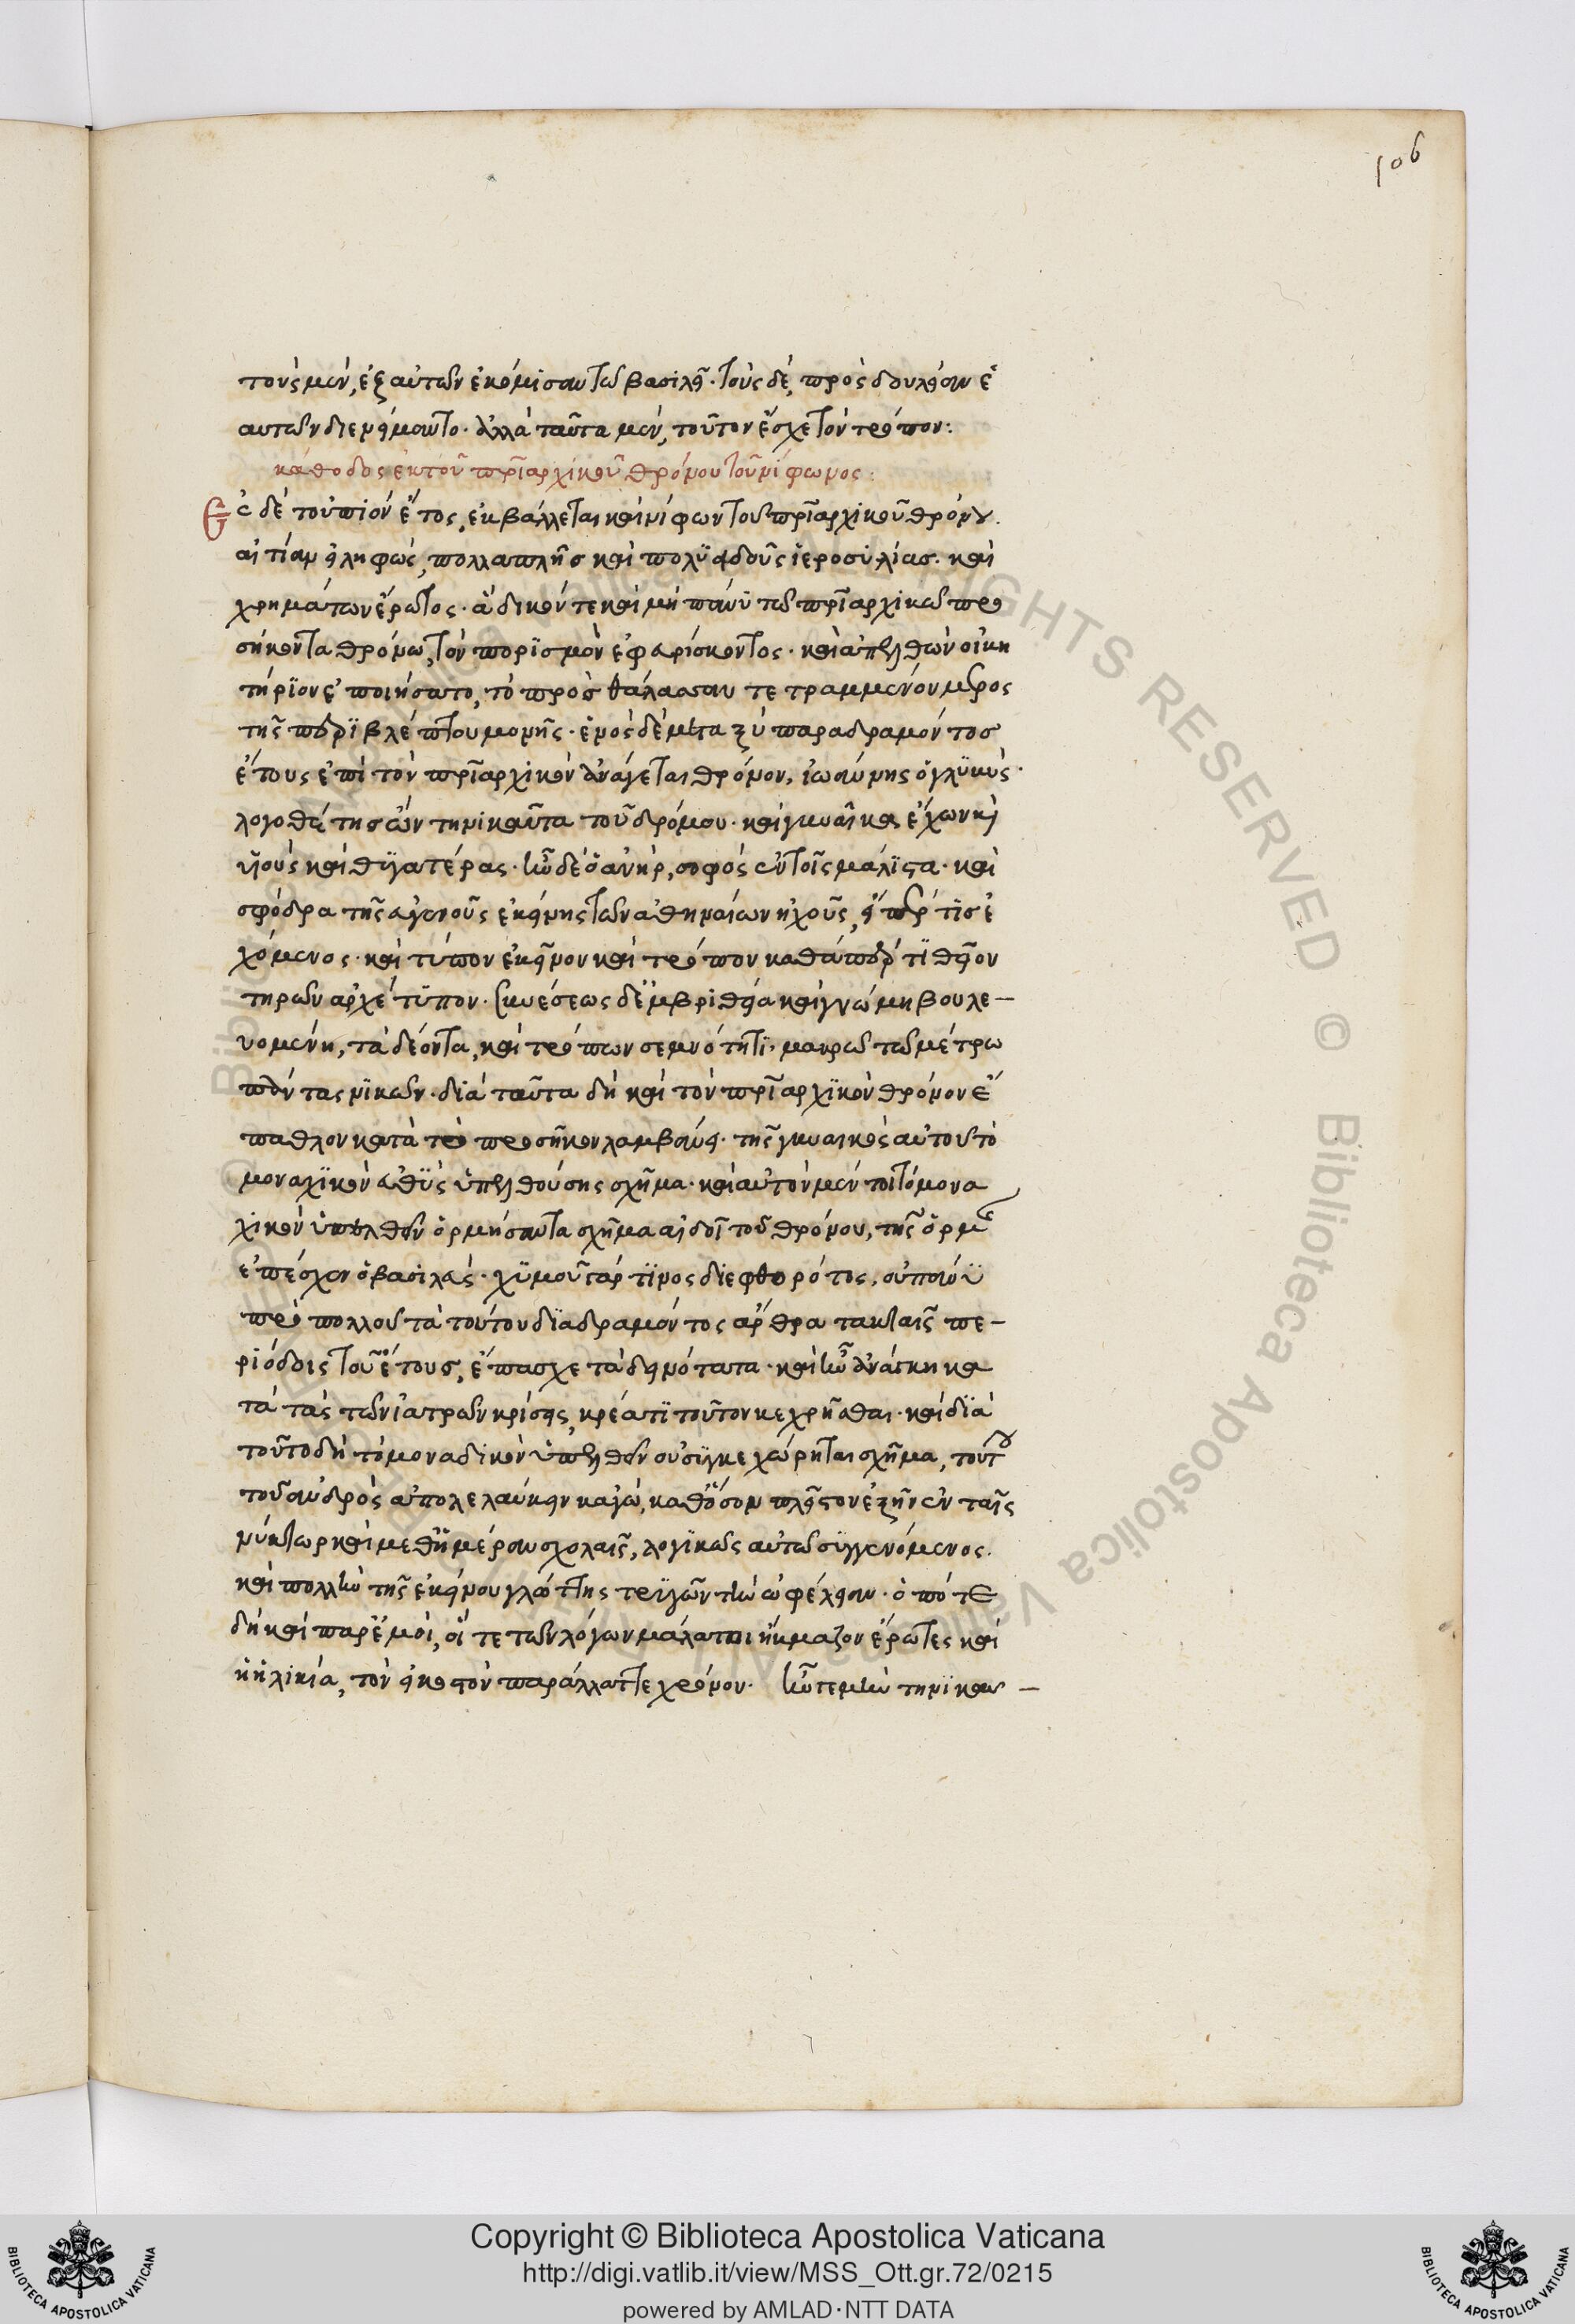 106
τοὺς μὲν, ἐξ αὐτῶν ἐκόμισαν τῶ βασιλεῖ. τοὺς δὲ, πρὸς δουλείαν ἑ
αυτῶν διενείμαντο. ἀλλὰ ταῦτα μὲν, τοῦτον ἔσχε τὸν τρόπον:
κάθοδος ἐκ τοῦ πριαρχικοῦ θρόνου τοῦ νίφωνος:
Ἐς δὲ τοὐπιὸν ἔτος, ἐκβάλλεται καὶ νίφων τοῦ πριαρχικοῦ θρόνου.
αἰτίαν εἰληφὼς, πολλαπλῆσ καὶ πολϋειδοῦς ἱεροσυλίασ. καὶ
χρημάτων ἔρωτος. ἄδικόν τε καὶ μὴ πάνϋ τῶ πριαρχικῶ προ
σήκοντα θρόνω, τὸν πορϊσμὸν ἐφευρίσκοντος. καὶ ἀπελθὼν οἰκη
τήριον ἐποιήσατο, τὸ πρὸς θάλασσαν τετραμμένον μέρος
τῆς περϊβλέπτου μονῆς. ἑνὸς δὲ μεταξὺ παραδραμόντοσ
ἔτους ἐπὶ τὸν πριαρχικὸν ἀνάγεται θρόνον, ἰωάννης ὁ γλϋκὺς.
λογοθέτησ ὢν τηνικαῦτα τοῦ δρόμου. καὶ γυναῖκα ἔχων καὶ
υἱοὺς καὶ θϋγατέρας. ἦν δὲ ὁ ἀνὴρ, σοφὸς ἐν τοῖς μάλϊστα. καὶ
σφόδρα τῆς εὐγενοῦς ἐκείνης τῶν ἀθηναίων ἠχοῦς, εἴπερ τϊσ ἐ
χόμενος. καὶ τύπον ἐκεῖνον καὶ τρόπον καθάπερ τϊ θεῖον
τηρῶν ἀρχέτϋπον. συνέσεως δἐμβριθεία καὶ γνώμη βουλε-
υομένη, τὰ δέοντα, καὶ τρόπων σεμνότητϊ, μακρῶ τῶ μέτρω
πάντας νϊκῶν. διὰ ταῦτα δὴ καὶ τὸν πριαρχϊκὸν θρόνον ἔ
παθλον κατὰ τὸ προσῆκον λαμβάνει. τῆς γυναικὸς αὐτοῦ τὸ
μοναχϊκὸν εὐθϋς ὑπελθούσης σχῆμα. καὶ αὐτὸν μέν τοι τὸ μονα
χικὸν ὑπελθεῖν ὁρμήσαντα σχῆμα αἰδοῖ τοῦ θρόνου, τῆς ὁρμῆς
ἐπέσχεν ὁ βασιλεὺς. χϋμοῦ γάρ τϊνος διεφθορότος, οὐπάνϋ
πρὸ πολλοῦ τὰ τούτου διαδραμόντος ἄρθρα τακταῖς πε-
ριόδοις τοῦ ἔτους, ἔπασχε τὰ δεινότατα. καὶ ἦν ἀνάγκη κα
τὰ τὰς τῶν ἰατρῶν κρίσεις, κρέατϊ τοῦτον κεχρῆσθαι. καὶ διὰ
τοῦτο δὴ τὸ μοναδικὸν ὑπελθεῖν οὐ σϋγκεχώρηται σχῆμα, τούτου
τοῦ ἀνδρὸς ἀπολελαύκειν κἀγὼ, καθόσον πλεῖστον ἐξῆν ἐν ταῖς
νύκτωρ καὶ μεθ' ἡμέραν σχολαῖς, λογϊκῶς αὐτῶ συγγενόμενος.
καὶ πολλὴν τῆς ἐκείνου γλώττης τρϋγῶν τὴν ὠφέλειαν. ὁπότε
δὴ καὶ παρἐμοὶ, οἵ τε τῶν λόγων μάλα τοι ἤκμαζον ἔρωτες καὶ
ἡ ἡλικία, τὸν εἰκοστὸν παράλλαττε χρόνον. ἦν τε μὴν τηνϊκαῦ-
Copyright © Biblioteca Apostolica Vaticana
http://digi.vatlib.it/view/MSS_Ott.gr.72/0215
powered by AMLAD·NTT DATA
BIBLIOTECA APOSTOLICA VATICANA
BIBLIOTECA APOSTOLICA VATICANA